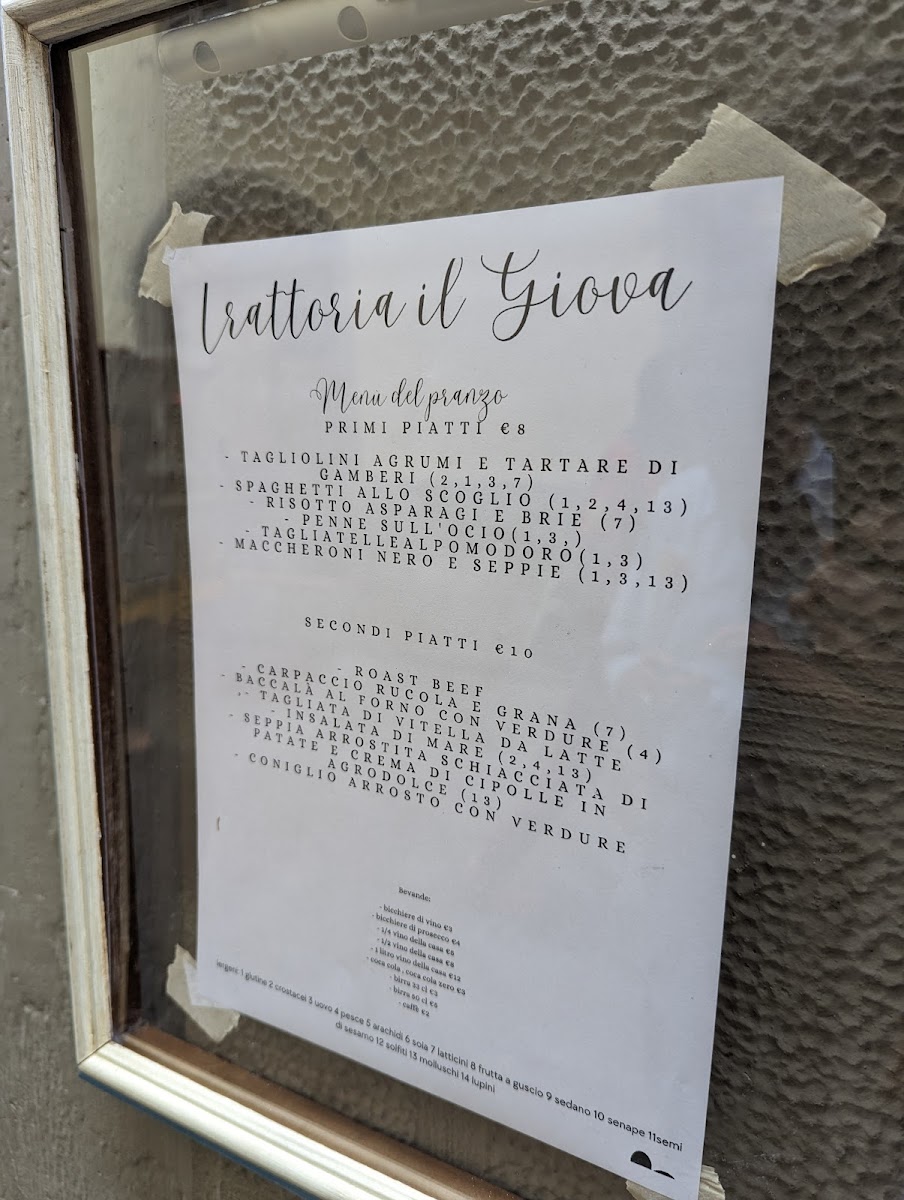 trattoria il Giova
Menù del pranzo
PRIMI PIATTI €8
- TAGLIOLINI AGRUMI E TARTARE DI
GAMBERI (2,1,3,7)
- SPAGHETTI ALLO SCOGLIO (1,2,4,13)
- RISOTTO ASPARAGI E BRIE (7)
- PENNE SULL'OCIO(1,3,)
- TAGLIATELLEALPOMODORO(1,3)
- MACCHERONI NERO E SEPPIE (1,3,13)
SECONDI PIATTI €10
- ROAST BEEF
- CARPACCIO RUCOLA E GRANA (7)
- BACCALÀ AL FORNO CON VERDURE (4)
,- TAGLIATA DI VITELLA DA LATTE
- INSALATA DI MARE (2,4,13)
- SEPPIA ARROSTITA SCHIACCIATA DI
PATATE E CREMA DI CIPOLLE IN
AGRODOLCE (13)
- CONIGLIO ARROSTO CON VERDURE
bevande:
- bicchiere di vino €3
- bicchiere di prosecco €4
- 1/4 vino della casa €6
- 1/2 vino della casa €8
- 1 litro vino della casa €12
- coca cola , coca cola zero €3
- birra 33 cl €3
- birra 60 cl €5
- caffè €2
lergeni: 1 glutine 2 crostacei 3 uovo 4 pesce 5 arachidi 6 soia 7 latticini 8 frutta a guscio 9 sedano 10 senape 11semi
di sesamo 12 solfiti 13 molluschi 14 lupini